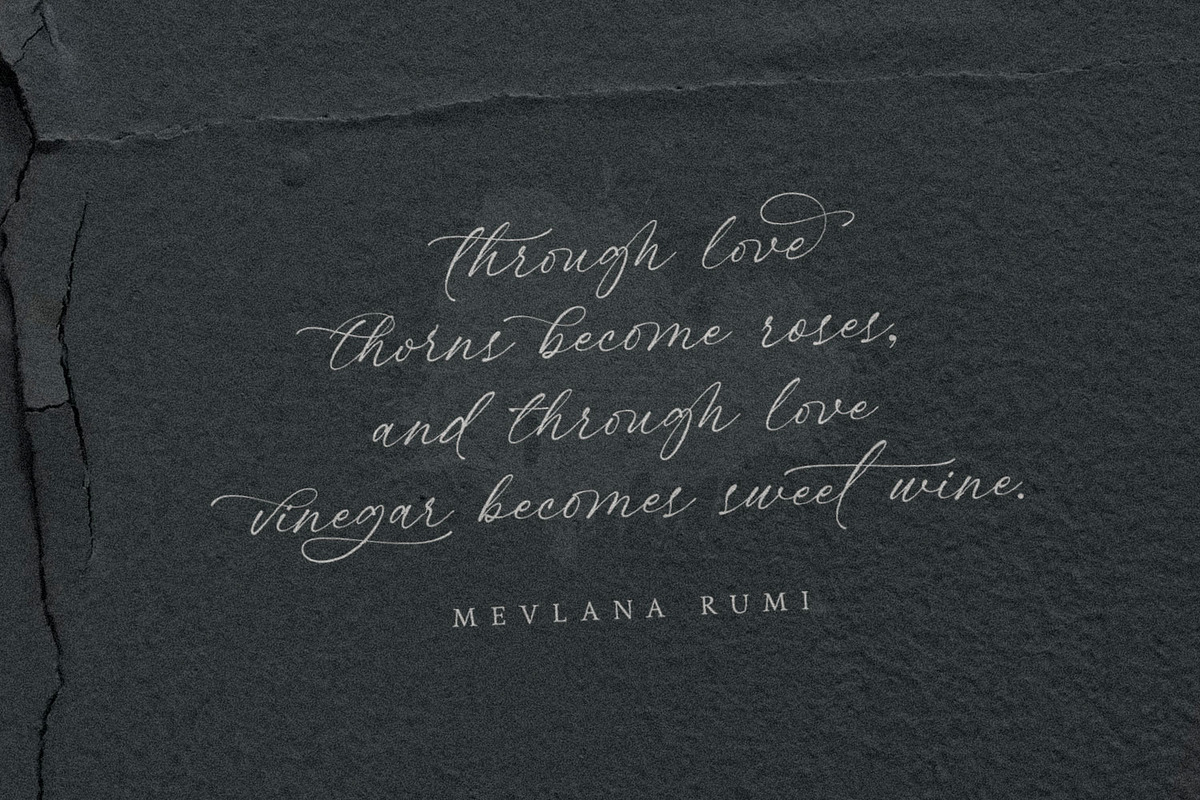 through love
thorns become roses,
and through love
vinegar becomes sweet wine.
MEVLANA RUMI